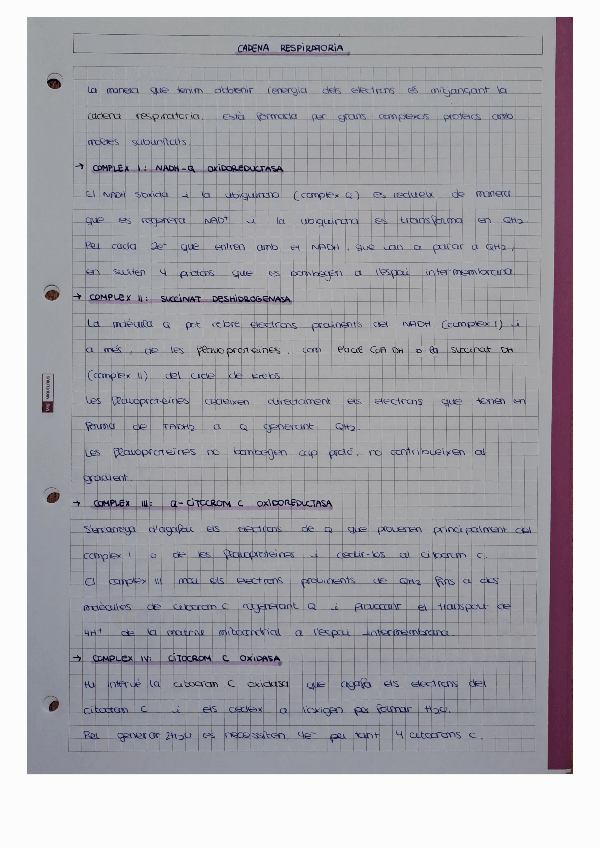 CADENA RESPIRATORIA
La manera que tenim d'obtenir l'energia dels electrons és mitjançant la
cadena respiratoria. Està formada per grans complexos proteics amb
moltes subunitats.
→ COMPLEX I: NADH-Q OXIDOREDUCTASA
El NADH s'oxida i la ubiquinona (complex Q) es redueix de manera
que es regenera NAD+ i la ubiquinona es transforma en QH2
Per cada 2e- que entren amb el NADH, que van a parar a QH2,
en surten 4 protons que es bombegen a l'espai intermembrana
→ COMPLEX II: SUCCINAT DESHIDROGENASA
La molècula Q pot rebre electrons provinents del NADH (complex I) i
a més, de les flavoproteïnes, com l'acil CoA DH o la succinat DH
(complex II) del cicle de Krebs.
Les flavoproteïnes cedeixen directament els electrons que tenen en
forma de FADH2 a Q generant QH2.
Les flavoproteïnes no bombegen cap protó, no contribueixen al
gradient.
→ COMPLEX III: Q-CITOCROM C OXIDOREDUCTASA
S'encarrega d'agafar els electrons de Q que provenen principalment del
complex I o de les flavoproteïnes i cedir-los al citocrom c.
El complex III mou els electrons provinents de QH2 fins a dos
molècules de citocrom C regenerant Q i provocant el transport de
4H+ de la matriu mitocondrial a l'espai intermembrana.
→ COMPLEX IV: CITOCROM C OXIDASA
Hi intervé la citocrom C oxidasa que agafa els electrons del
citocrom C i els cedeix a l'oxigen per formar H2O.
Per generar 2H2O es necessiten 4e- per tant 4 citocroms c.